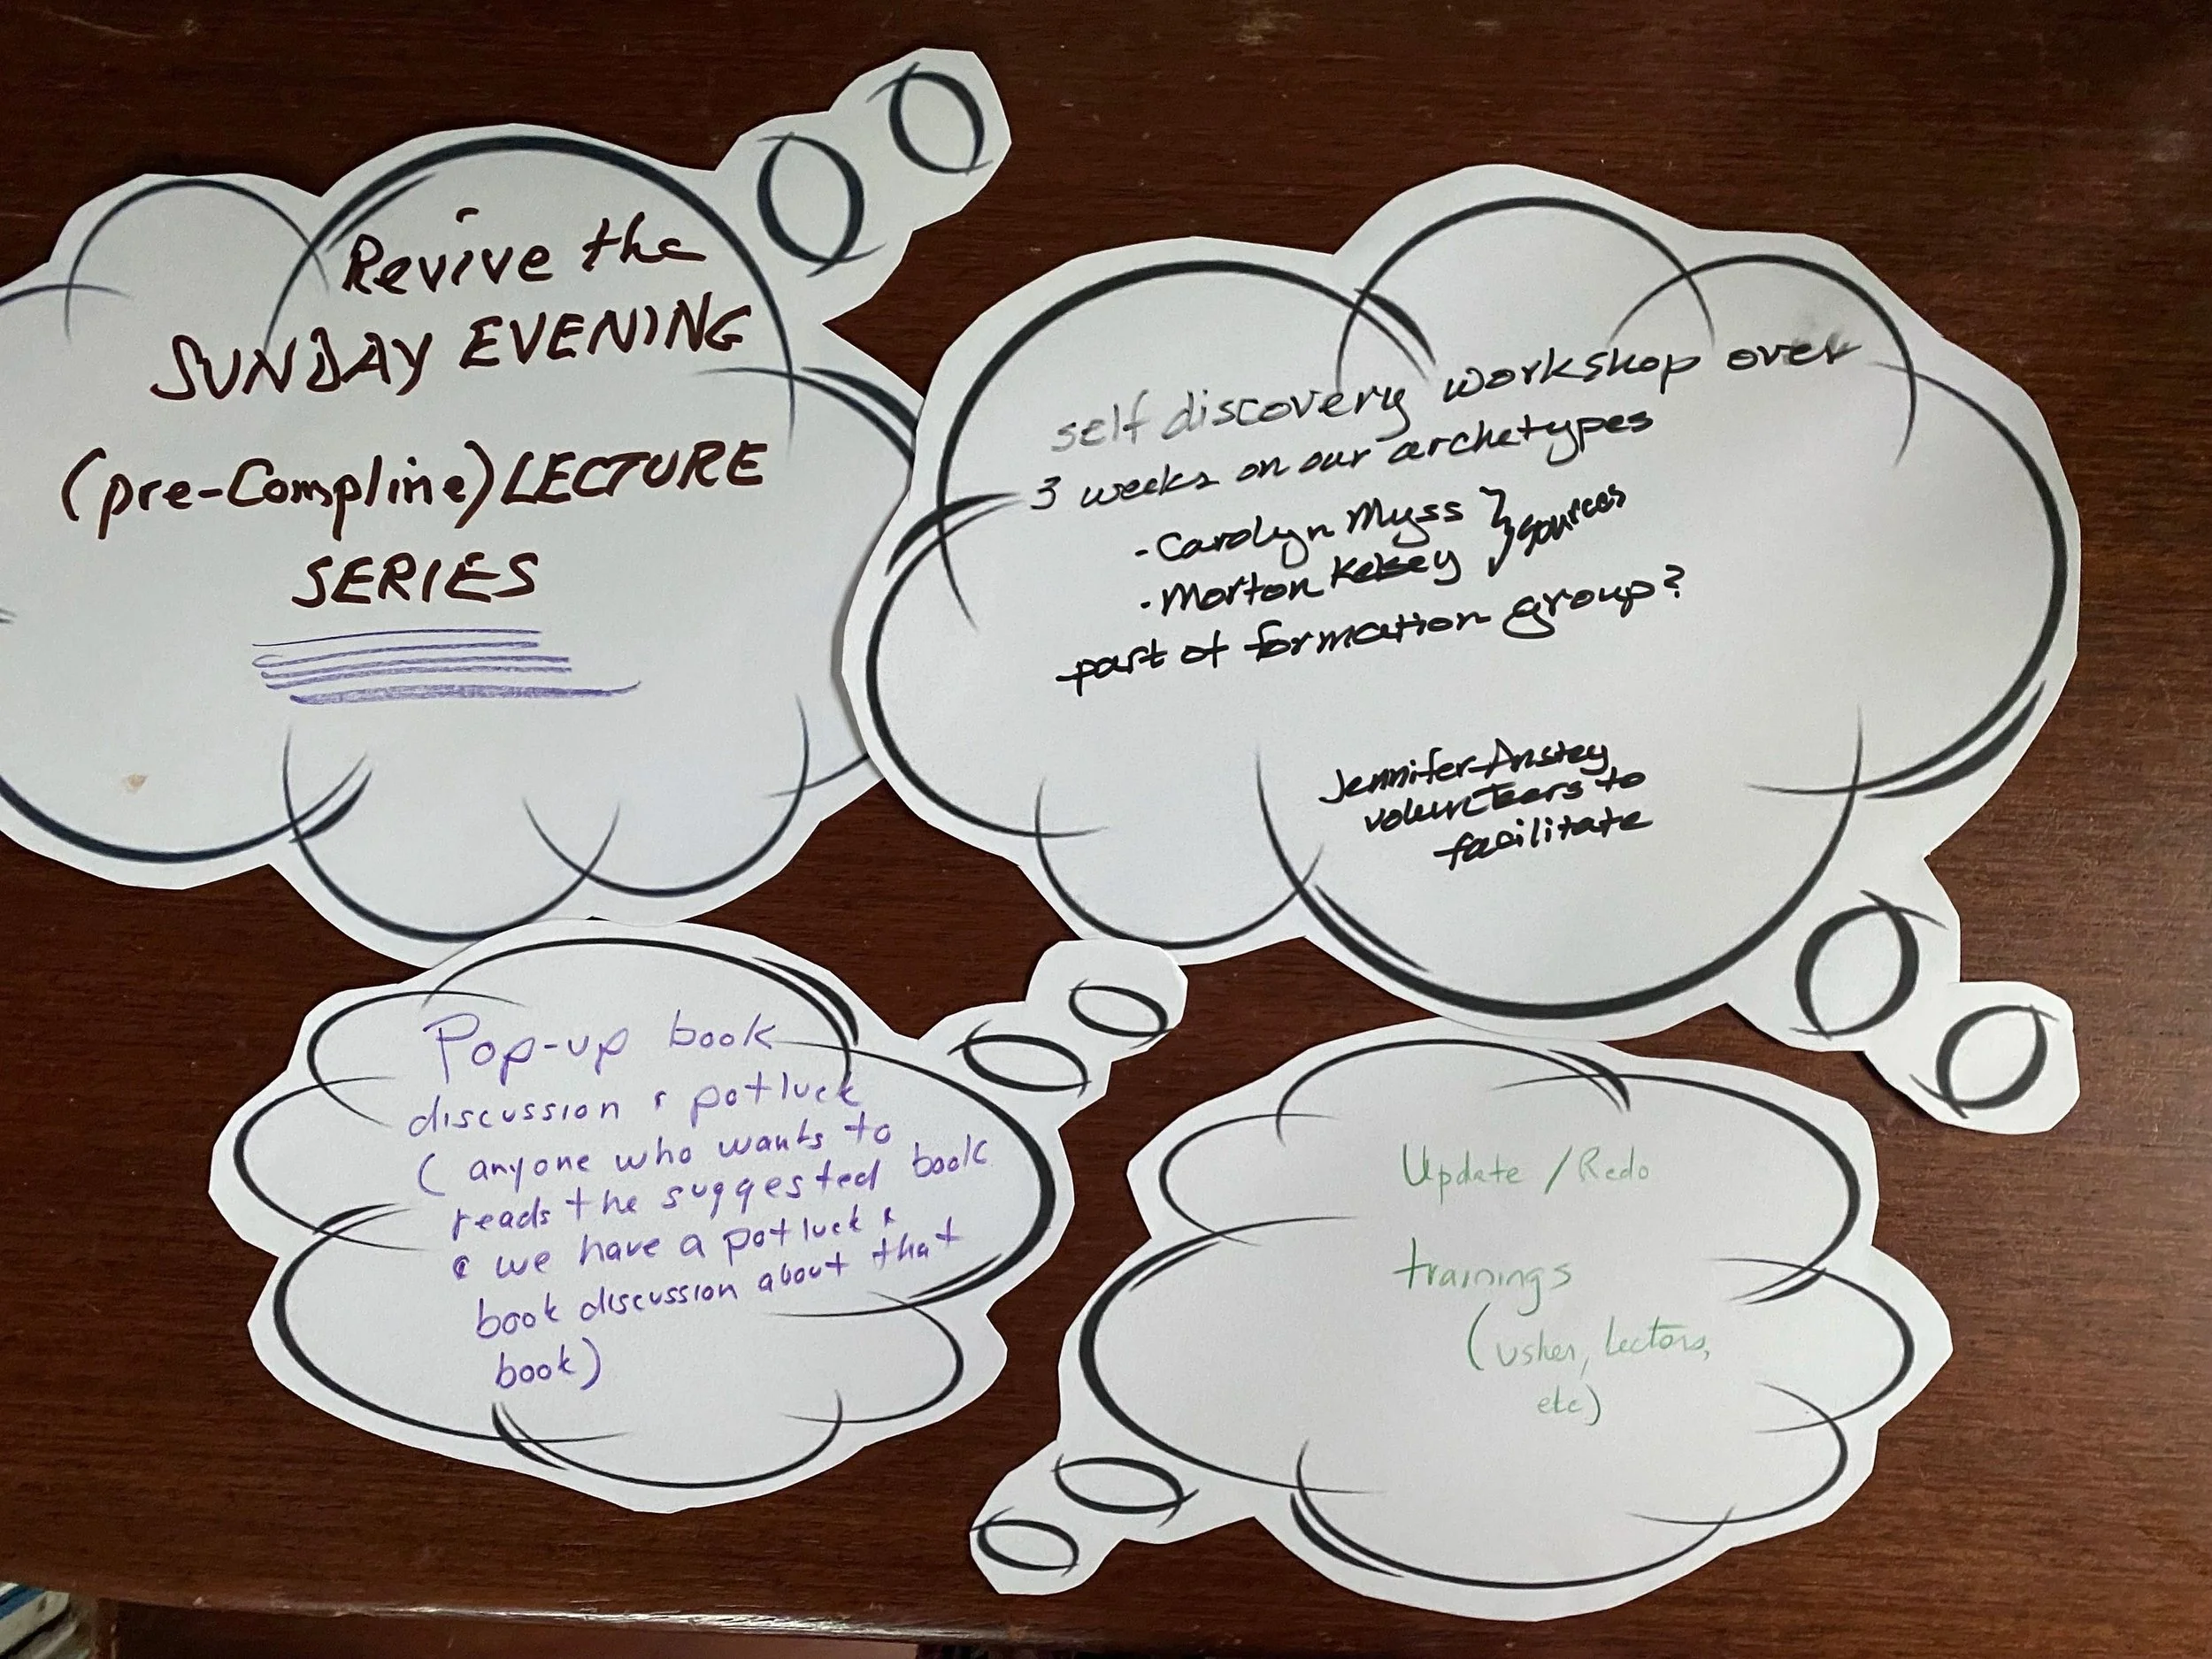 Revive the
SUNDAY EVENING
(pre-Compline) LECTURE
SERIES
self discovery workshop over
3 weeks on our archetypes
- Carolyn Myss } sources
- Morton Kelsey
part of formation group?
Jennifer Anstey
volunteers to
facilitate
Pop-up book
discussion & potluck
( anyone who wants to
reads the suggested book
& we have a potluck &
book discussion about that
book)
Update / Redo
trainings
(usher, Lectors,
etc)